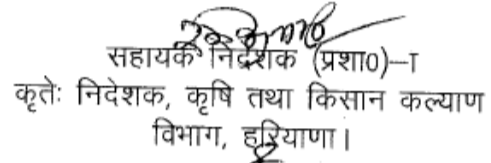 सहायक निदेशक (प्रशा0)–I
कृतेः निदेशक, कृषि तथा किसान कल्याण
विभाग, हरियाणा।